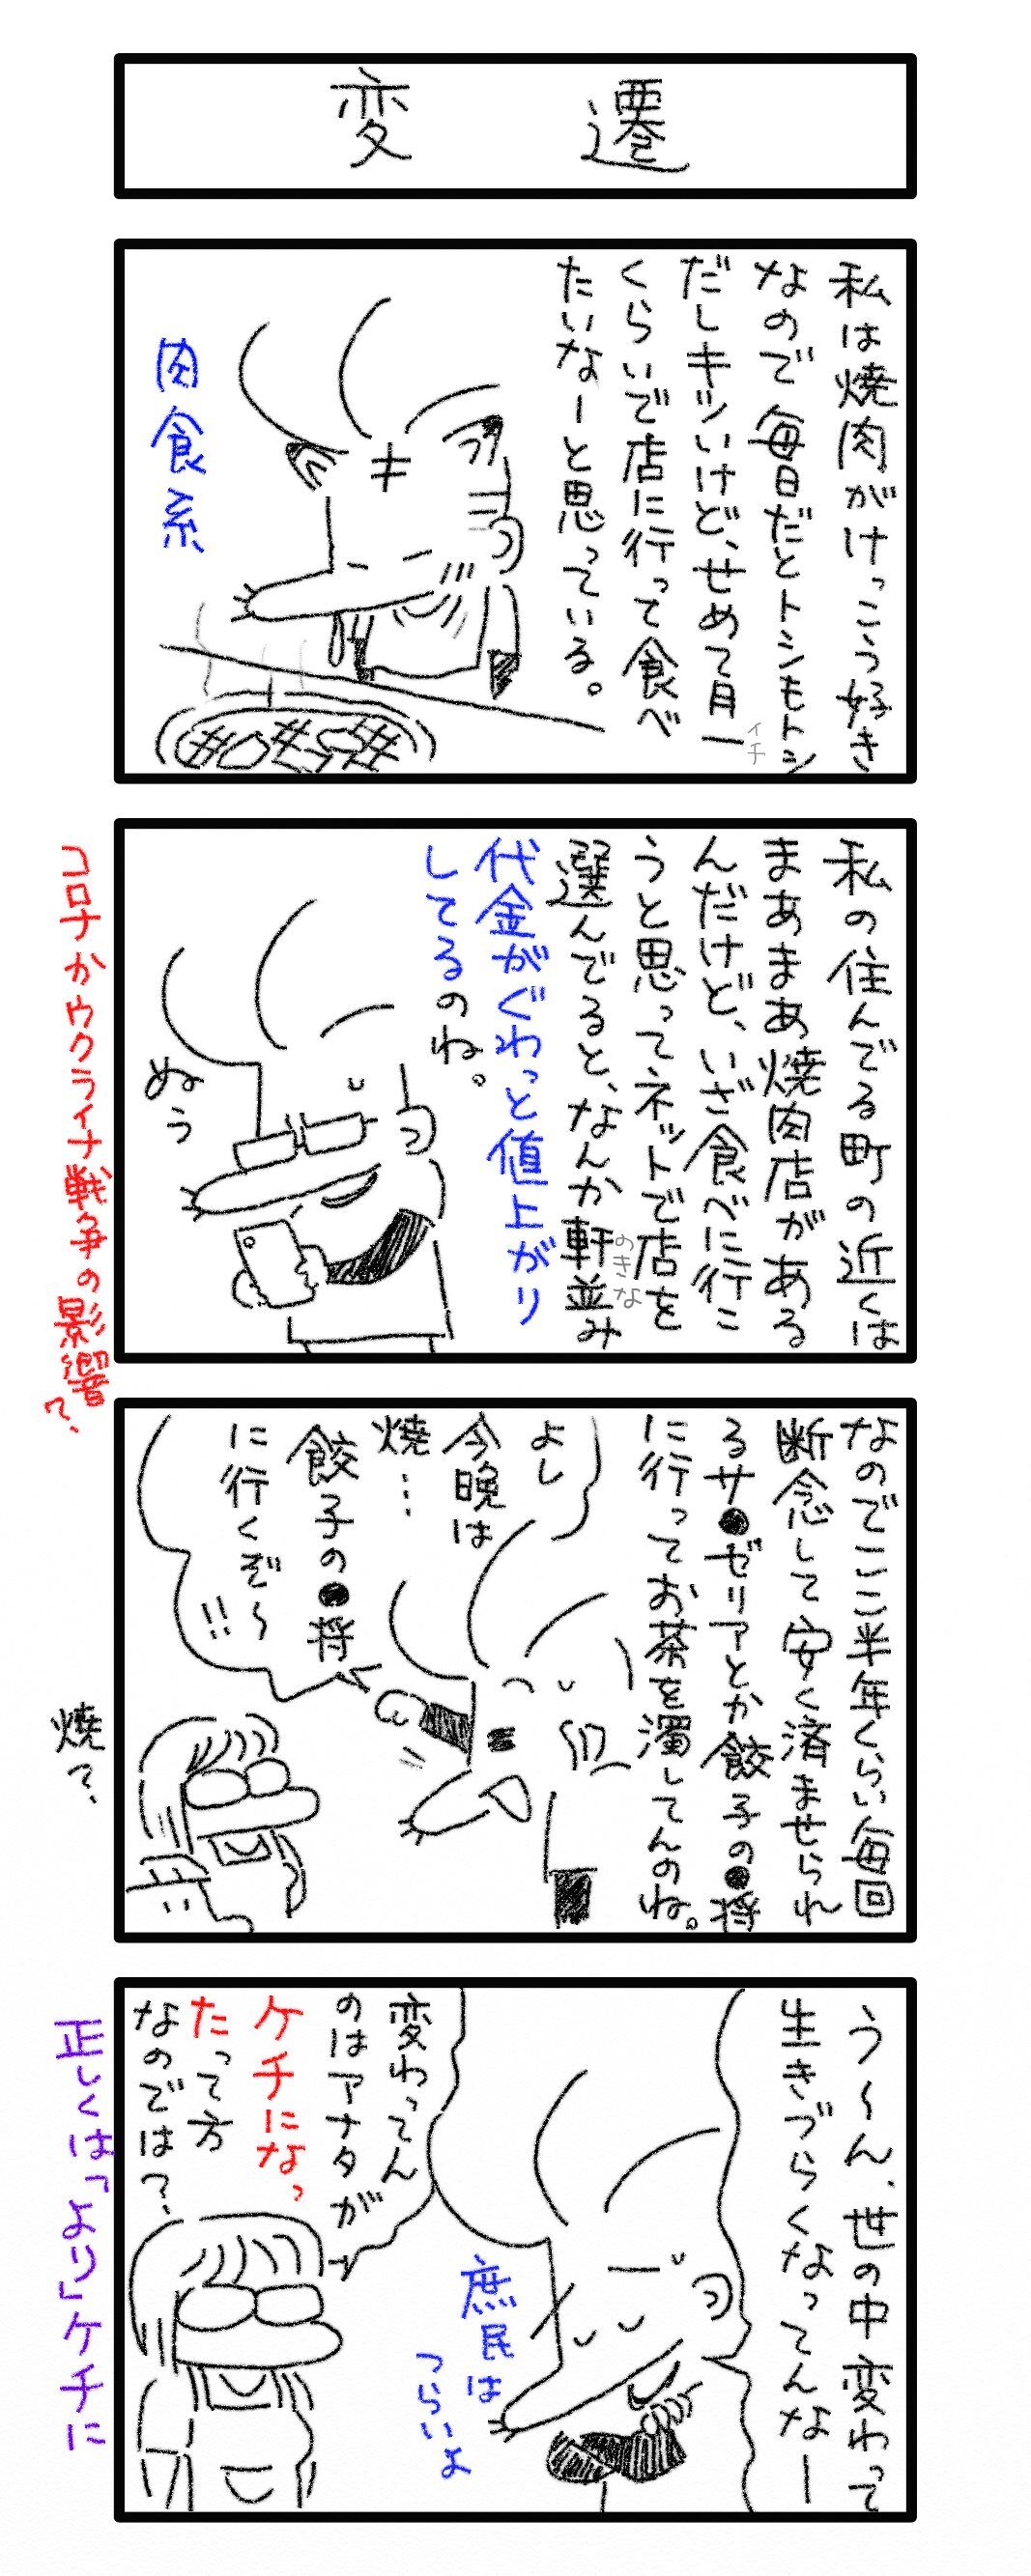 変遷
私は焼肉がけっこう好き
なので毎日だとトシもトシ
だしキツいけど、せめて月一
イチ
くらいで店に行って食べ
たいなーと思っている。
肉食系
私の住んでる町の近くは
まあまあ焼肉店がある
んだけど、いざ食べに行こ
うと思ってネットで店を
選んでると、なんか軒並み
のきな
代金がぐわっと値上がり
してるのね。
ぬう
コロナかウクライナ戦争の影響?
なのでここ半年くらい毎回
断念して安く済ませられ
るサ●ゼリアとか餃子の●将
に行ってお茶を濁してんのね。
よし
今晩は
焼…
餃子の●将
に行くぞ〜
!!
焼?
う〜ん、世の中変わって
生きづらくなってんなー
庶民は
つらいよ
変わってん
のはアナタが
ケチになっ
たって方
なのでは?
正しくは「より」ケチに